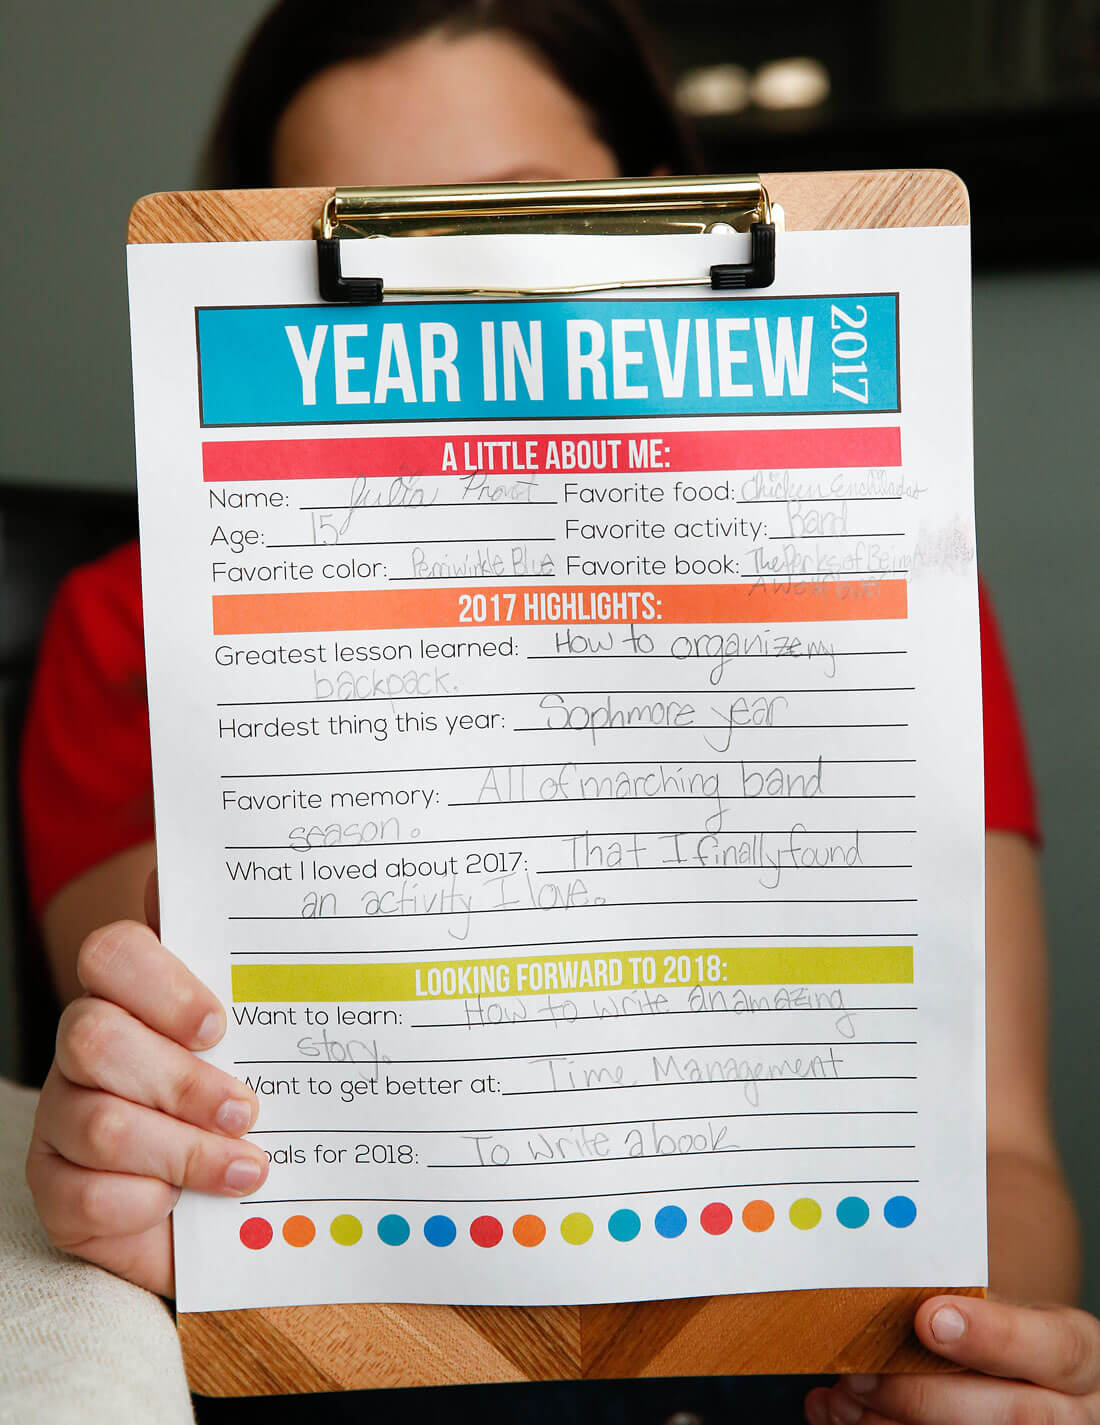 YEAR IN REVIEW 2017
A LITTLE ABOUT ME:
Name: Julia Provst Favorite food: Chicken Enchiladas
Age: 15 Favorite activity: Band
Favorite color: Perriwinkle Blue Favorite book: The Perks of Being
A Wallflower
2017 HIGHLIGHTS:
Greatest lesson learned: How to organize my
backpack.
Hardest thing this year: Sophmore year
Favorite memory: All of marching band
season.
What I loved about 2017: That I finally found
an activity I love.
LOOKING FORWARD TO 2018:
Want to learn: How to write an amazing
story.
Want to get better at: Time Management
oals for 2018: To write a book